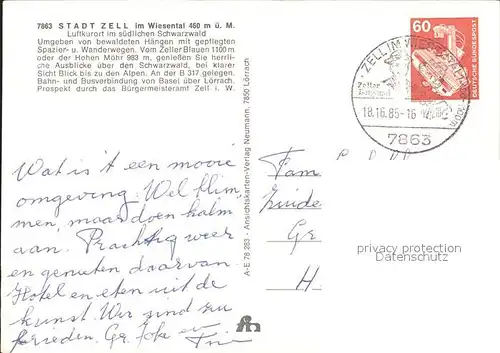 7863 STADT ZELL im Wiesental 460 m ü. M.
Luftkurort im südlichen Schwarzwald
Umgeben von bewaldeten Hängen mit gepflegten
Spazier- u. Wanderwegen. Vom Zeller Blauen 1100 m
oder der Hohen Möhr 983 m, genießen Sie herr-
liche Ausblicke über den Schwarzwald, bei klarer
Sicht Blick bis zu den Alpen. An der B 317 gelegen.
Bahn- und Busverbindung von Basel über Lörrach.
Prospekt durch das Bürgermeisteramt Zell i. W.
Wat is it een mooie
omgeving. Wel klim,
men, maar doen kalm
aan. Prachtig weer
en genieten daar van
Hotel en eten uit de
kunst. Wij zijn zeer
tevreden. Gr. Joke en
A-E 78 283 - Ansichtskarten-Verlag Neumann, 7850 Lörrach
60
DEUTSCHE BUNDESPOST
ZELL IM WIESENTAL
Zeller
18.16.85-16
7863
Fam
Gr
H
privacy protection
Datenschutz